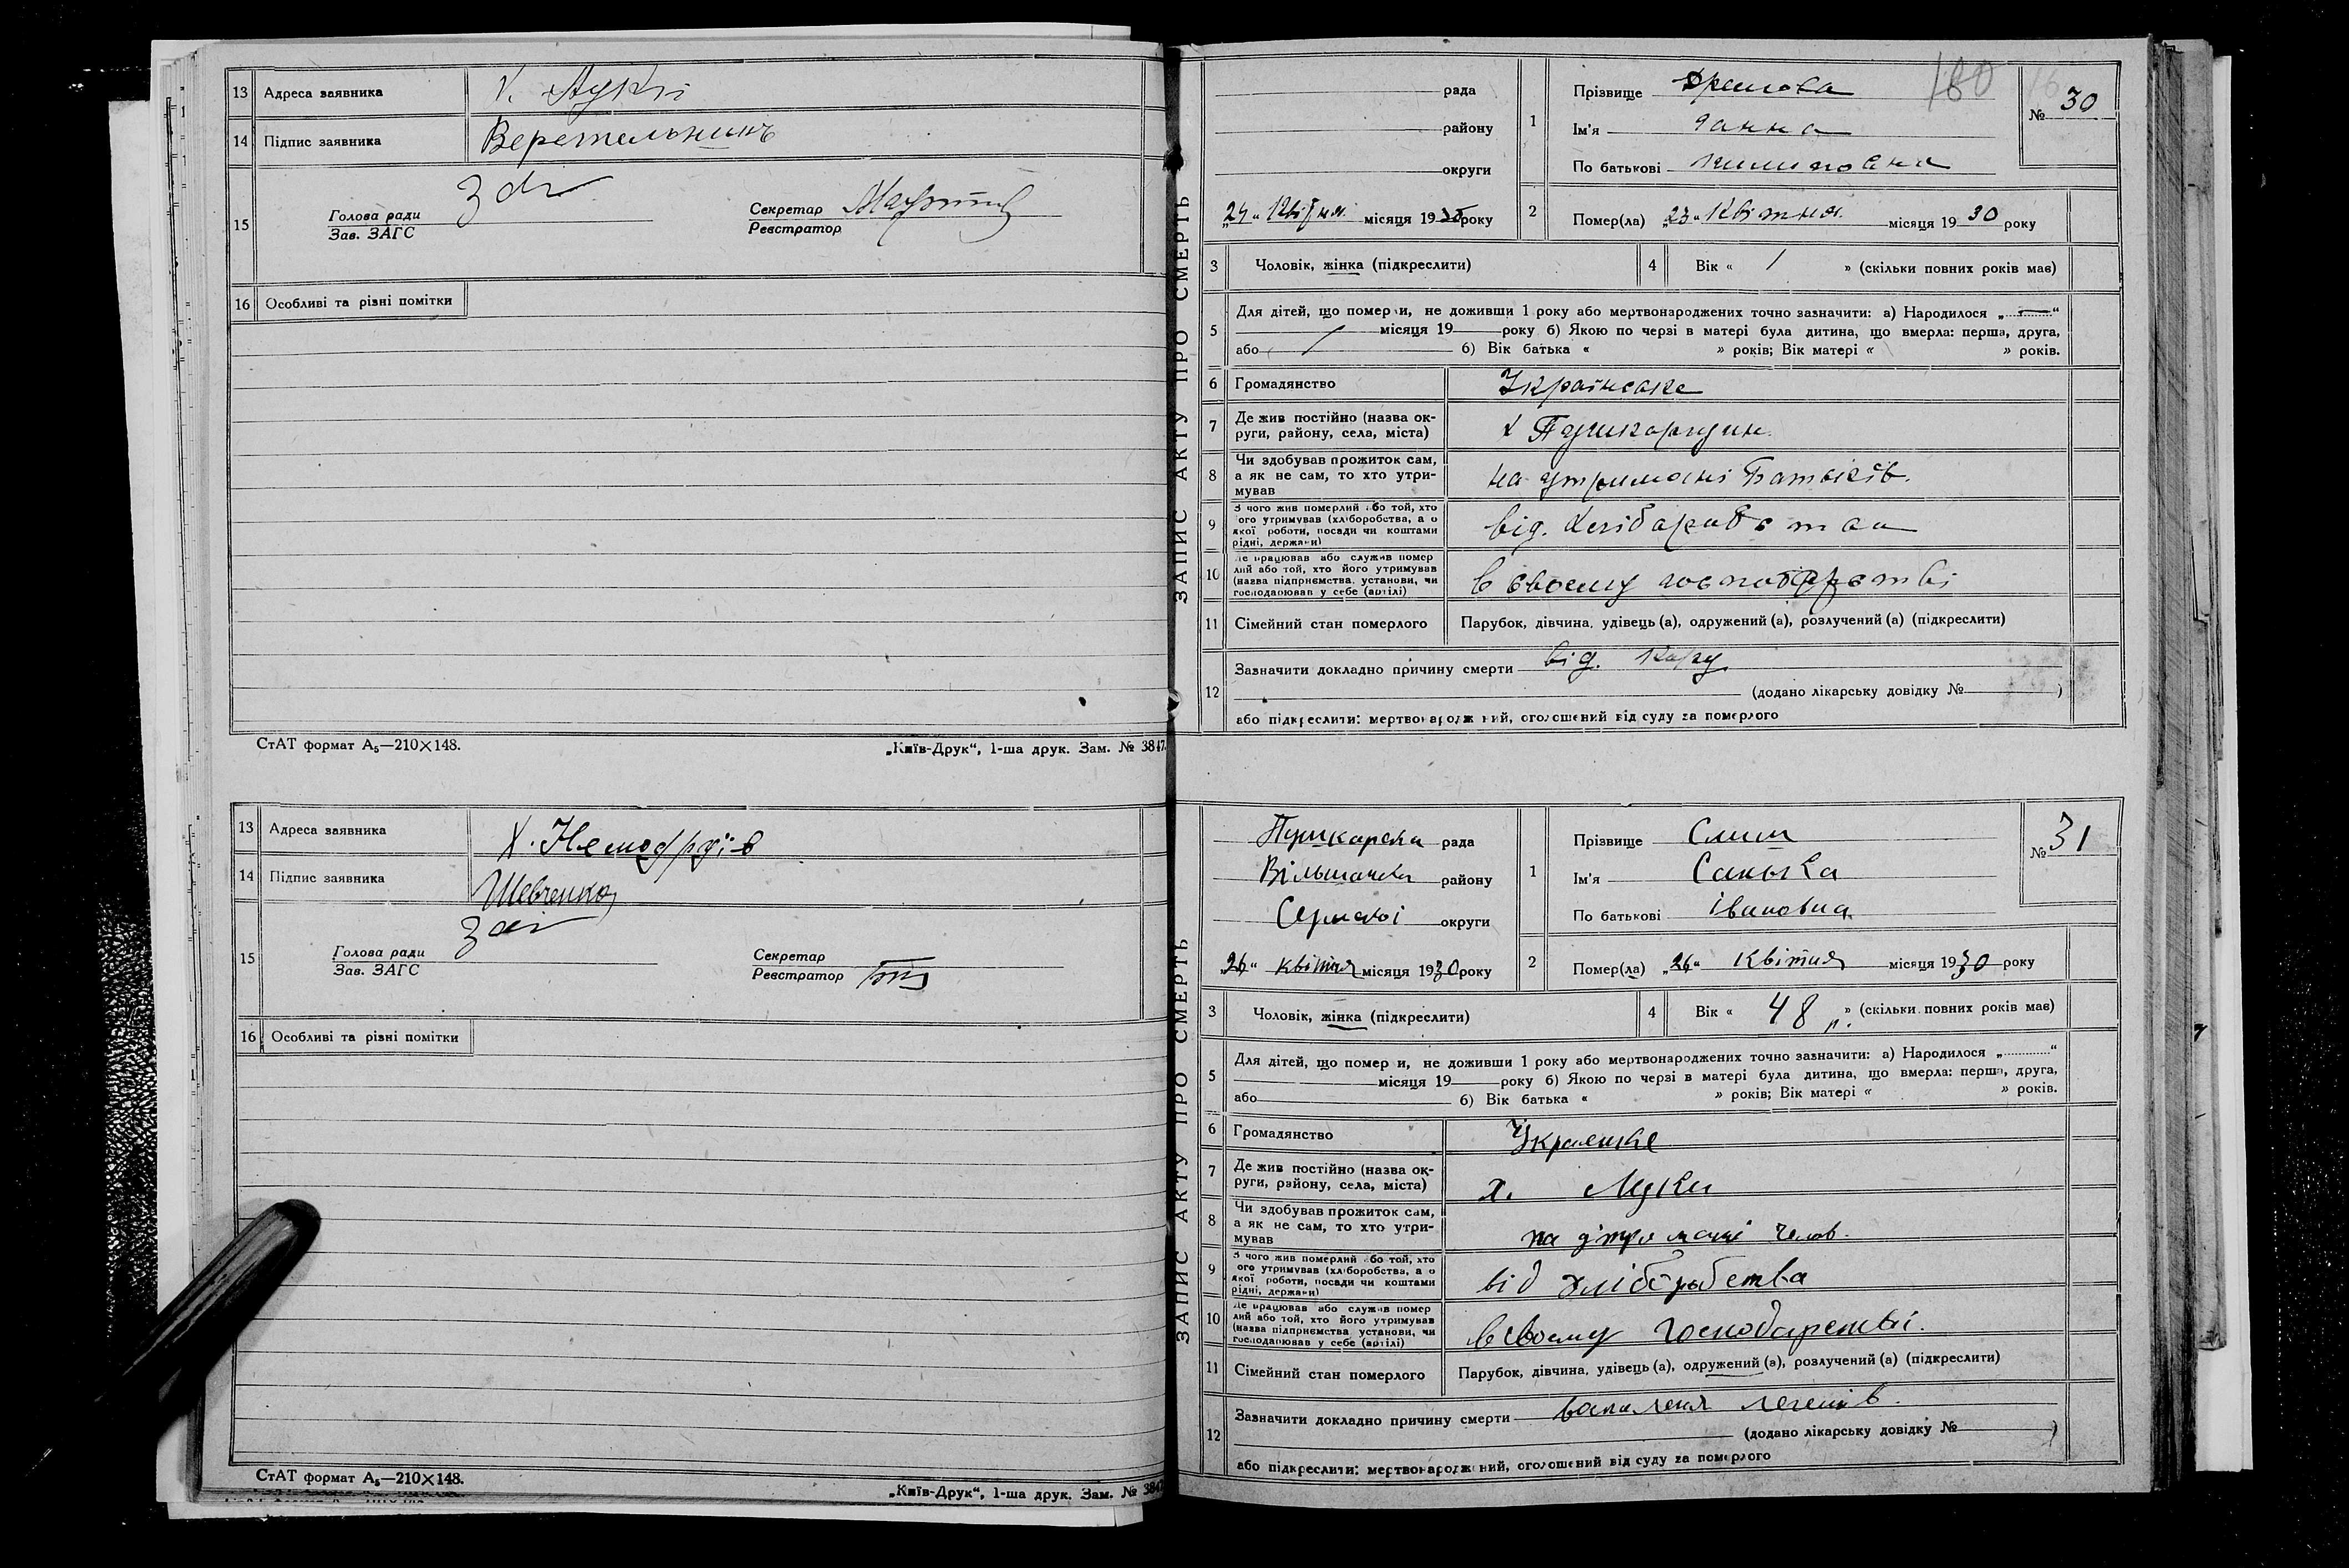 13 Адреса заявника Х. Луки
14 Підпис заявника Веретельникъ
15 Голова ради
Зав. ЗАГС
Секретар
Реєстратор
16 Особливі та різні помітки
СтАТ формат А₅—210×148.
„Київ-Друк“, 1-ша друк. Зам. № 3847.
13 Адреса заявника Х.
14 Підпис заявника Шевченко
15 Голова ради
Зав. ЗАГС
Секретар
Реєстратор
16 Особливі та різні помітки
СтАТ формат А₅—210×148.
„Київ-Друк“, 1-ша друк. Зам. № 3847
ЗАПИС АКТУ ПРО СМЕРТЬ
160
№ 30
рада
району
округи
„24“ Квітня місяця 1930 року
1 Прізвище
Ім'я Ганна
По батькові
2 Помер(ла) „23“ Квітня місяця 1930 року
3 Чоловік, жінка (підкреслити)
4 Вік « 1 » (скільки повних років має)
5 Для дітей, що померли, не доживши 1 року або мертвонароджених точно зазначити: а) Народилося „ “
місяця 19 року б) Якою по черзі в матері була дитина, що вмерла: перша, друга,
або б) Вік батька « » років; Вік матері « » років.
6 Громадянство Українське
7 Де жив постійно (назва ок-
руги, району, села, міста)
8 Чи здобував прожиток сам,
а як не сам, то хто утри-
мував
на утримані Батьків.
9 З чого жив померлий або той, хто
його утримував (хліборобства, з
якої роботи, посади чи коштами
рідні, держави)
від. Хліборобства
10 Де працював або служив помер
лий або той, хто його утримував
(назва підприємства, установи, чи
господарював у себе (артілі)
в своему господарстві
11 Сімейний стан померлого Парубок, дівчина, удівець (а), одружений (а), розлучений (а) (підкреслити)
12 Зазначити докладно причину смерти від. Кору
(додано лікарську довідку № )
або підкреслити: мертвонароджений, оголошений від суду за померлого
ЗАПИС АКТУ ПРО СМЕРТЬ
№ 31
Пушкарска рада
Вільшанськ району
Сумскої округи
„26“ квітня місяця 1930 року
1 Прізвище Слиш
Ім'я Санька
По батькові Івановна
2 Помер(ла) „26“ Квітня місяця 1930 року
3 Чоловік, жінка (підкреслити)
4 Вік « 48 р. » (скільки повних років має)
5 Для дітей, що померли, не доживши 1 року або мертвонароджених точно зазначити: а) Народилося „ “
місяця 19 року б) Якою по черзі в матері була дитина, що вмерла: перша, друга,
або б) Вік батька « » років; Вік матері « » років.
6 Громадянство
7 Де жив постійно (назва ок-
руги, району, села, міста)
х. Луки
8 Чи здобував прожиток сам,
а як не сам, то хто утри-
мував
на утримані челов.
9 З чого жив померлий або той, хто
його утримував (хліборобства, з
якої роботи, посади чи коштами
рідні, держави)
від хліборобства
10 Де працював або служив помер
лий або той, хто його утримував
(назва підприємства, установи, чи
господарював у себе (артілі)
в своему господарстві.
11 Сімейний стан померлого Парубок, дівчина, удівець (а), одружений (а), розлучений (а) (підкреслити)
12 Зазначити докладно причину смерти легенів.
(додано лікарську довідку № )
або підкреслити: мертвонароджений, оголошений від суду за померлого